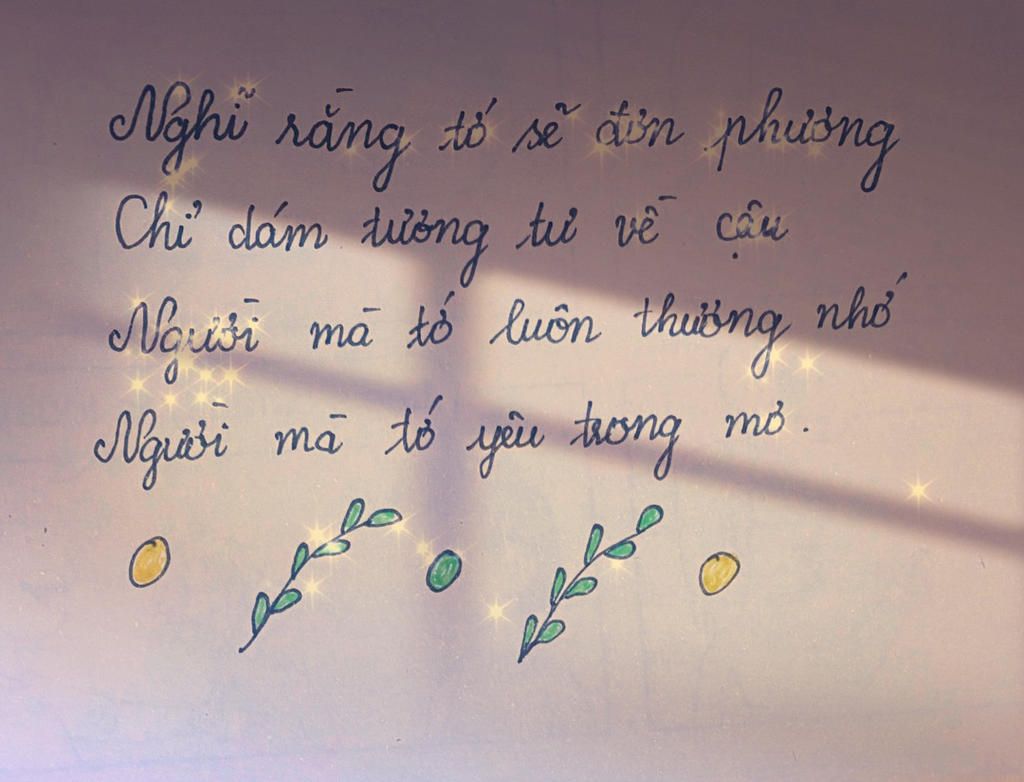 Nghĩ rằng tớ sẽ đơn phương
Chỉ dám tương tư về cậu
Người mà tớ luôn thương nhớ
Người mà tớ yêu trong mơ.